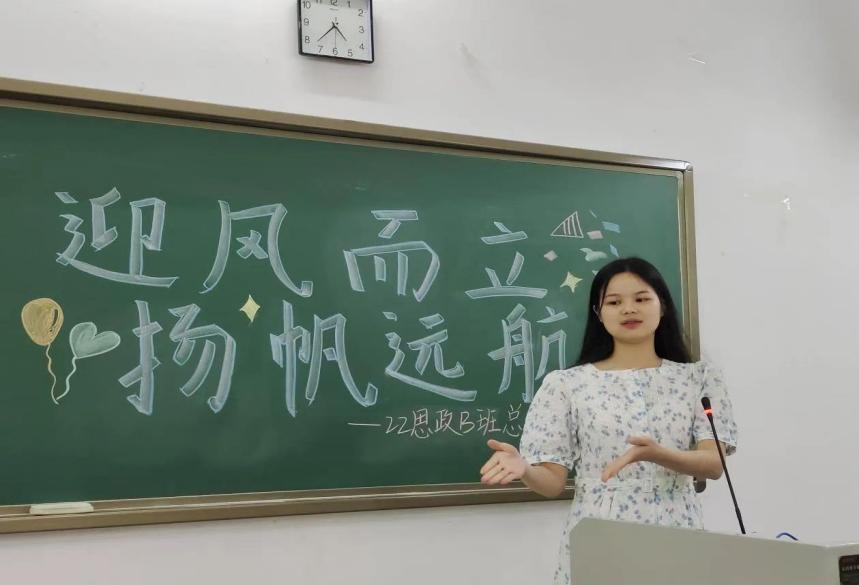 10 11 12 1 2 3 4 5 6 7 8 9
迎风而立
扬帆远航
—22思政B班总